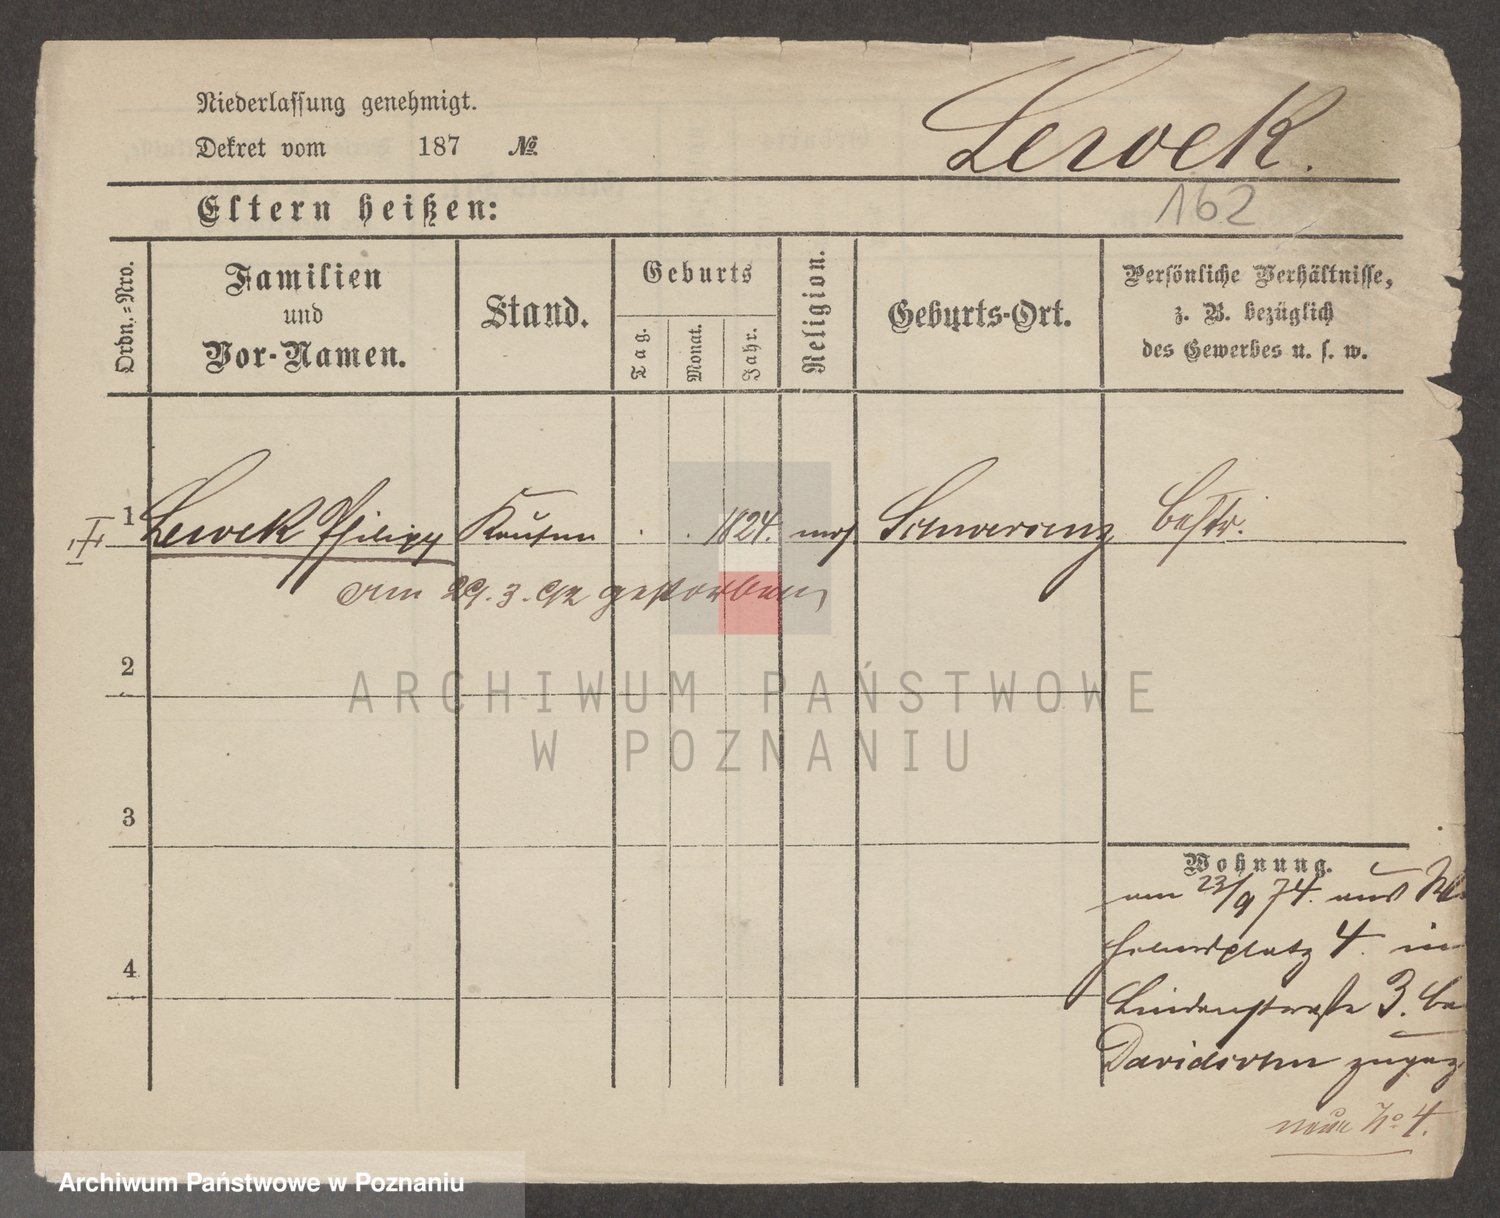 Niederlassung genehmigt.
Dekret vom 187 №
Lewek.
162
Eltern heißen:
Ordn.-Nro.
Familien
und
Vor-Namen.
Stand.
Geburts
Tag.
Monat.
Jahr.
Religion.
Geburts-Ort.
Persönliche Verhältnisse,
z. B. bezüglich
des Gewerbes u. s. w.
1 Lewek Philipp Kaufm 1824. mos Schwersenz bestr.
am 29.3.92 gestorben
2
3
4
Wohnung.
am 23/9 74. aus
platz 4. in
Lindenstraße 3. be
Davidsohn zugez
neue No 4.
ARCHIWUM PAŃSTWOWE
W POZNANIU
Archiwum Państwowe w Poznaniu